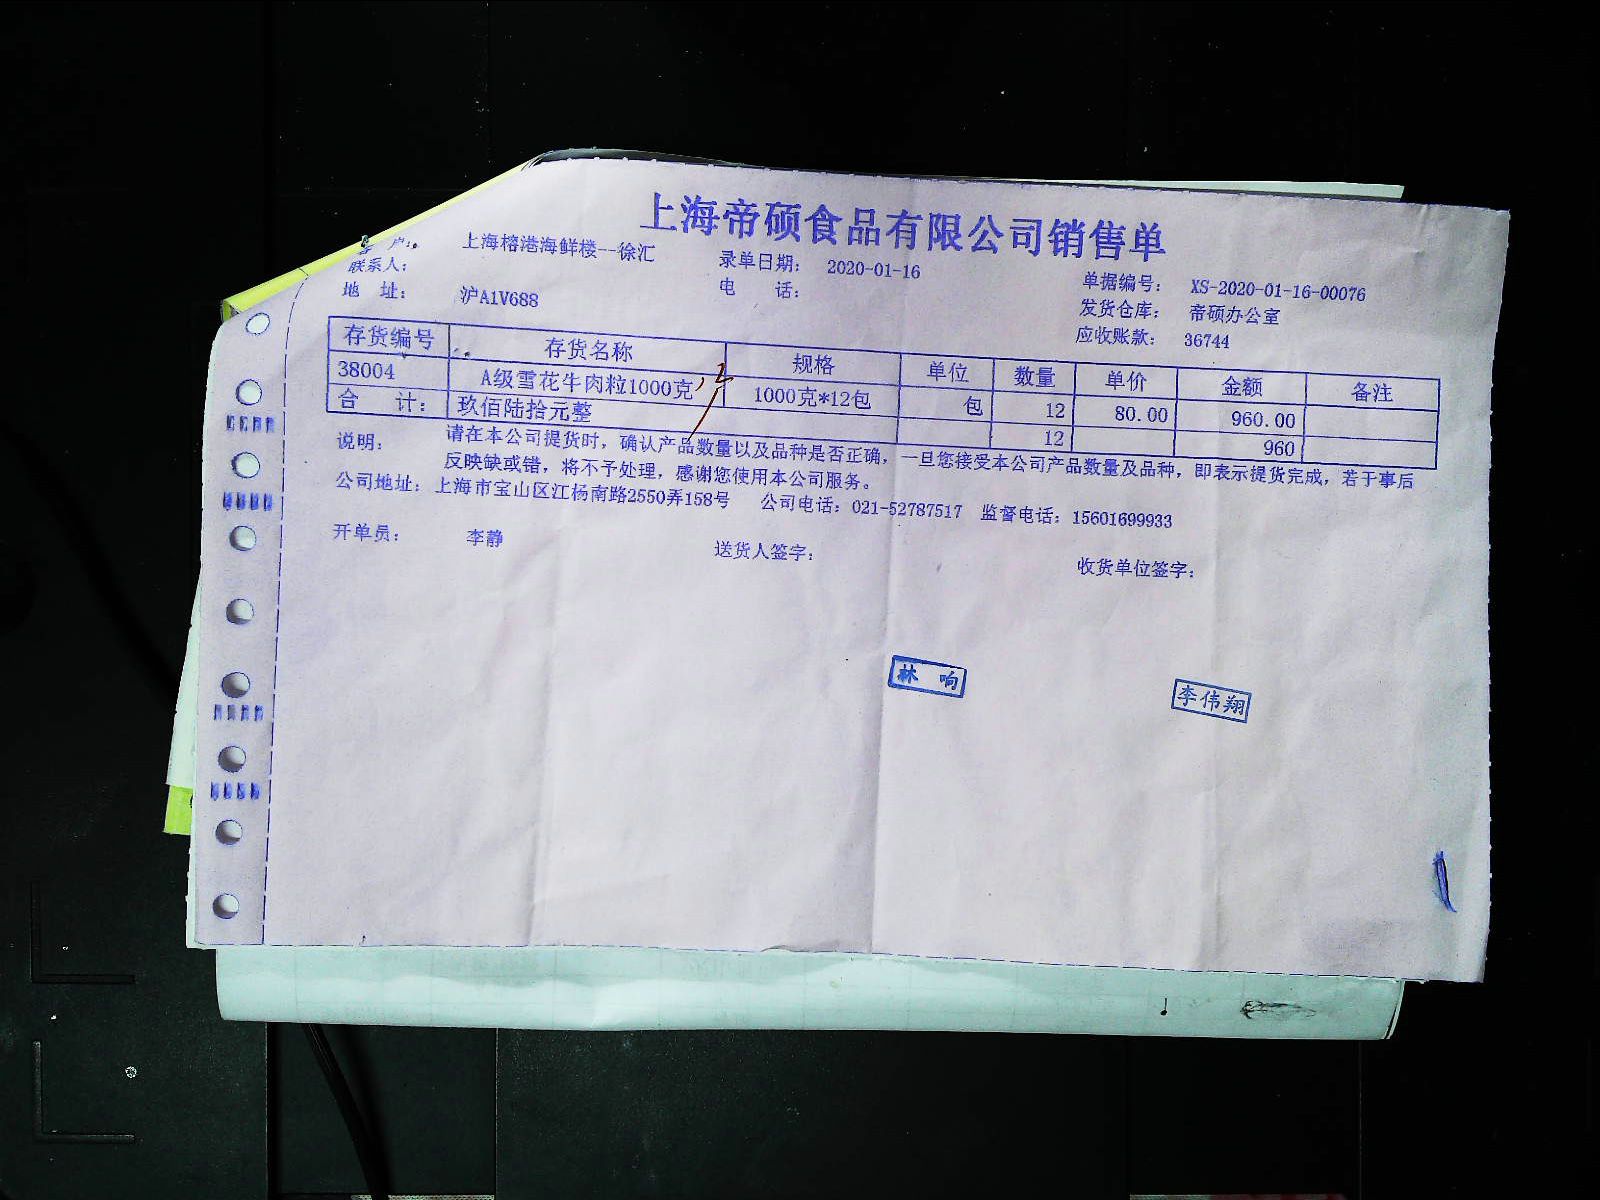 上海帝硕食品有限公司销售单
客 户： 上海榕港海鲜楼--徐汇 录单日期： 2020-01-16 单据编号： XS-2020-01-16-00076
联系人： 电 话： 发货仓库： 帝硕办公室
地 址： 沪A1V688 应收账款： 36744
存货编号 存货名称 规格 单位 数量 单价 金额 备注
38004 A级雪花牛肉粒1000克 1000克*12包 包 12 80.00 960.00
合 计： 玖佰陆拾元整 12 960
说明： 请在本公司提货时，确认产品数量以及品种是否正确，一旦您接受本公司产品数量及品种，即表示提货完成，若于事后
反映缺或错，将不予处理，感谢您使用本公司服务。
公司地址：上海市宝山区江杨南路2550弄158号 公司电话：021-52787517 监督电话：15601699933
开单员： 李静 送货人签字： 收货单位签字：
林 响 李伟翔